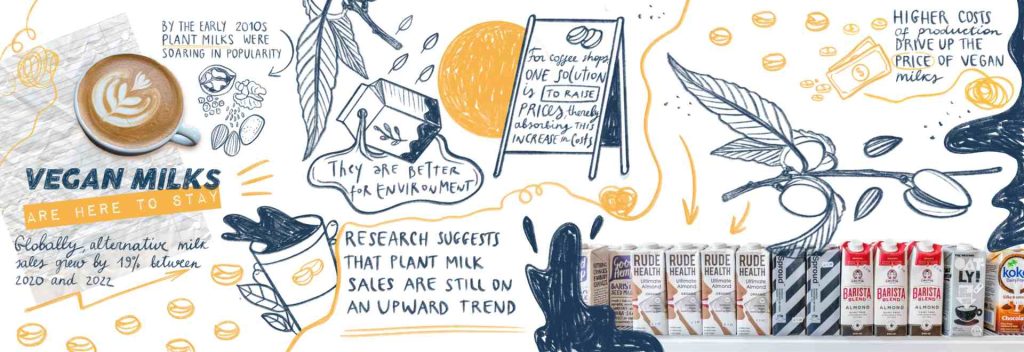 BY THE EARLY 2010S
PLANT MILKS WERE
SOARING IN POPULARITY
VEGAN MILKS
ARE HERE TO STAY
Globally, alternative milk
sales grew by 19% between
2020 and 2022
They ARE BETTER
FOR ENVIRONMENT
For coffee shops
ONE SOLUTION
is TO RAISE
PRICES, thereby
absorbing THIS
INCREASE in Costs
RESEARCH SUGGESTS
THAT PLANT MILK
SALES ARE STILL ON
AN UPWARD TREND
HIGHER COSTS
of production
DRIVE UP THE
PRICE OF VEGAN
milks
RUDE
HEALTH
Ultimate
Almond
RUDE
HEALTH
Ultimate
Almond
RUDE
HEALTH
Ultimate
Almond
RUDE
HEALTH
Ultimate
Almond
sproud
sproud
BARISTA
BLEND
ALMOND
BARISTA
BLEND
ALMOND
BARISTA
BLEND
ALMOND
LY!
koko